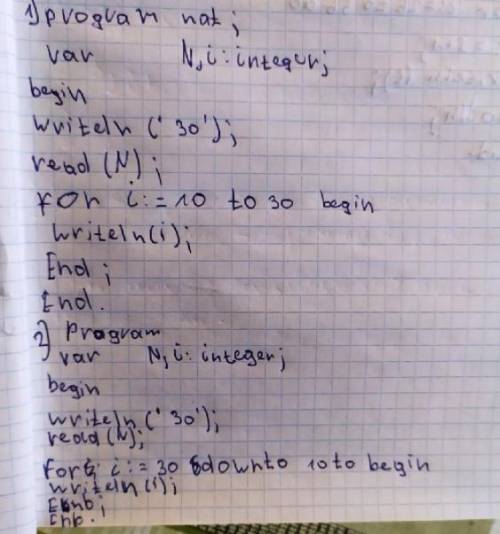 1) program nat;
var N,i: integer;
begin
writeln ('30');
read (N);
for i:= 10 to 30 begin
writeln(i);
End;
End.
2) Program
var N,i: integer;
begin
writeln ('30');
read (N);
for i:= 30 downto 10 to begin
writeln(i);
Enb;
Enb.